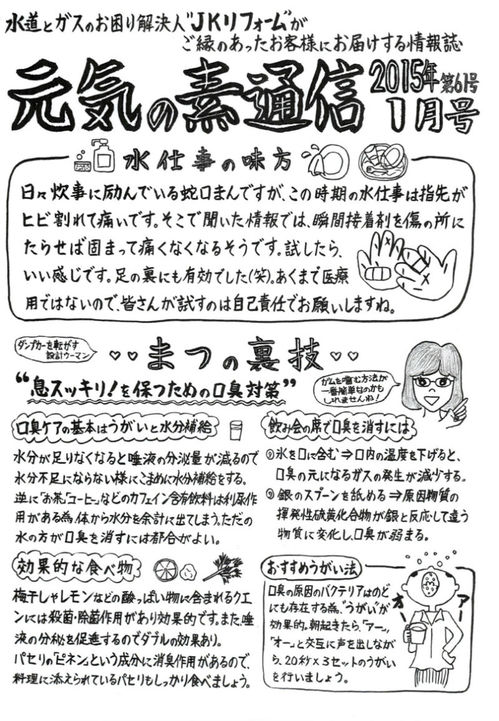 水道とガスのお困り解決人"JKリフォーム"が
ご縁のあったお客様にお届けする情報誌
元気の素通信
2015年 第61号
1月号
水仕事の味方
日々炊事に励んでいる蛇口まんですが、この時期の水仕事は指先が
ヒビ割れて痛いです。そこで聞いた情報では、瞬間接着剤を傷の所に
たらせば固まって痛くなくなるそうです。試したら、
いい感じです。足の裏にも有効でした(笑)。あくまで医療
用ではないので、皆さんが試すのは自己責任でお願いしますね。
ダンプカーを転がす
設計ウーマン
まつの裏技
"息スッキリ!を保つための口臭対策"
ガムを噛む方法が
一番簡単なのかも
しれませんね!
口臭ケアの基本はうがいと水分補給
水分が足りなくなると唾液の分泌量が減るので
水分不足にならない様にこまめに水分補給をする。
逆に"お茶、コーヒー"などのカフェイン含有飲料は利尿作
用がある為、体から水分を余計に出てしまう。ただの
水の方が口臭を消すには都合がよい。
飲み会の席で口臭を消すには
◎氷を口に含む⇒口内の温度を下げると、
口臭の元になるガスの発生が減少する。
◎銀のスプーンを舐める⇒原因物質の
揮発性硫黄化合物が銀と反応して違う
物質に変化し、口臭が弱まる。
効果的な食べ物
梅干しやレモンなどの酸っぱい物に含まれるクエ
ンには殺菌・除菌作用があり効果的です。また、唾
液の分泌を促進するのでダブルの効果あり。
パセリの「ピネン」という成分に消臭作用があるので、
料理に添えられているパセリもしっかり食べましょう。
おすすめうがい法
口臭の原因のバクテリアはのど
にも存在する為、"うがい"が
効果的。朝起きたら、「アー」、
「オー」と交互に声を出しなが
ら、20秒×3セットのうがい
を行いましょう。
アー
オー